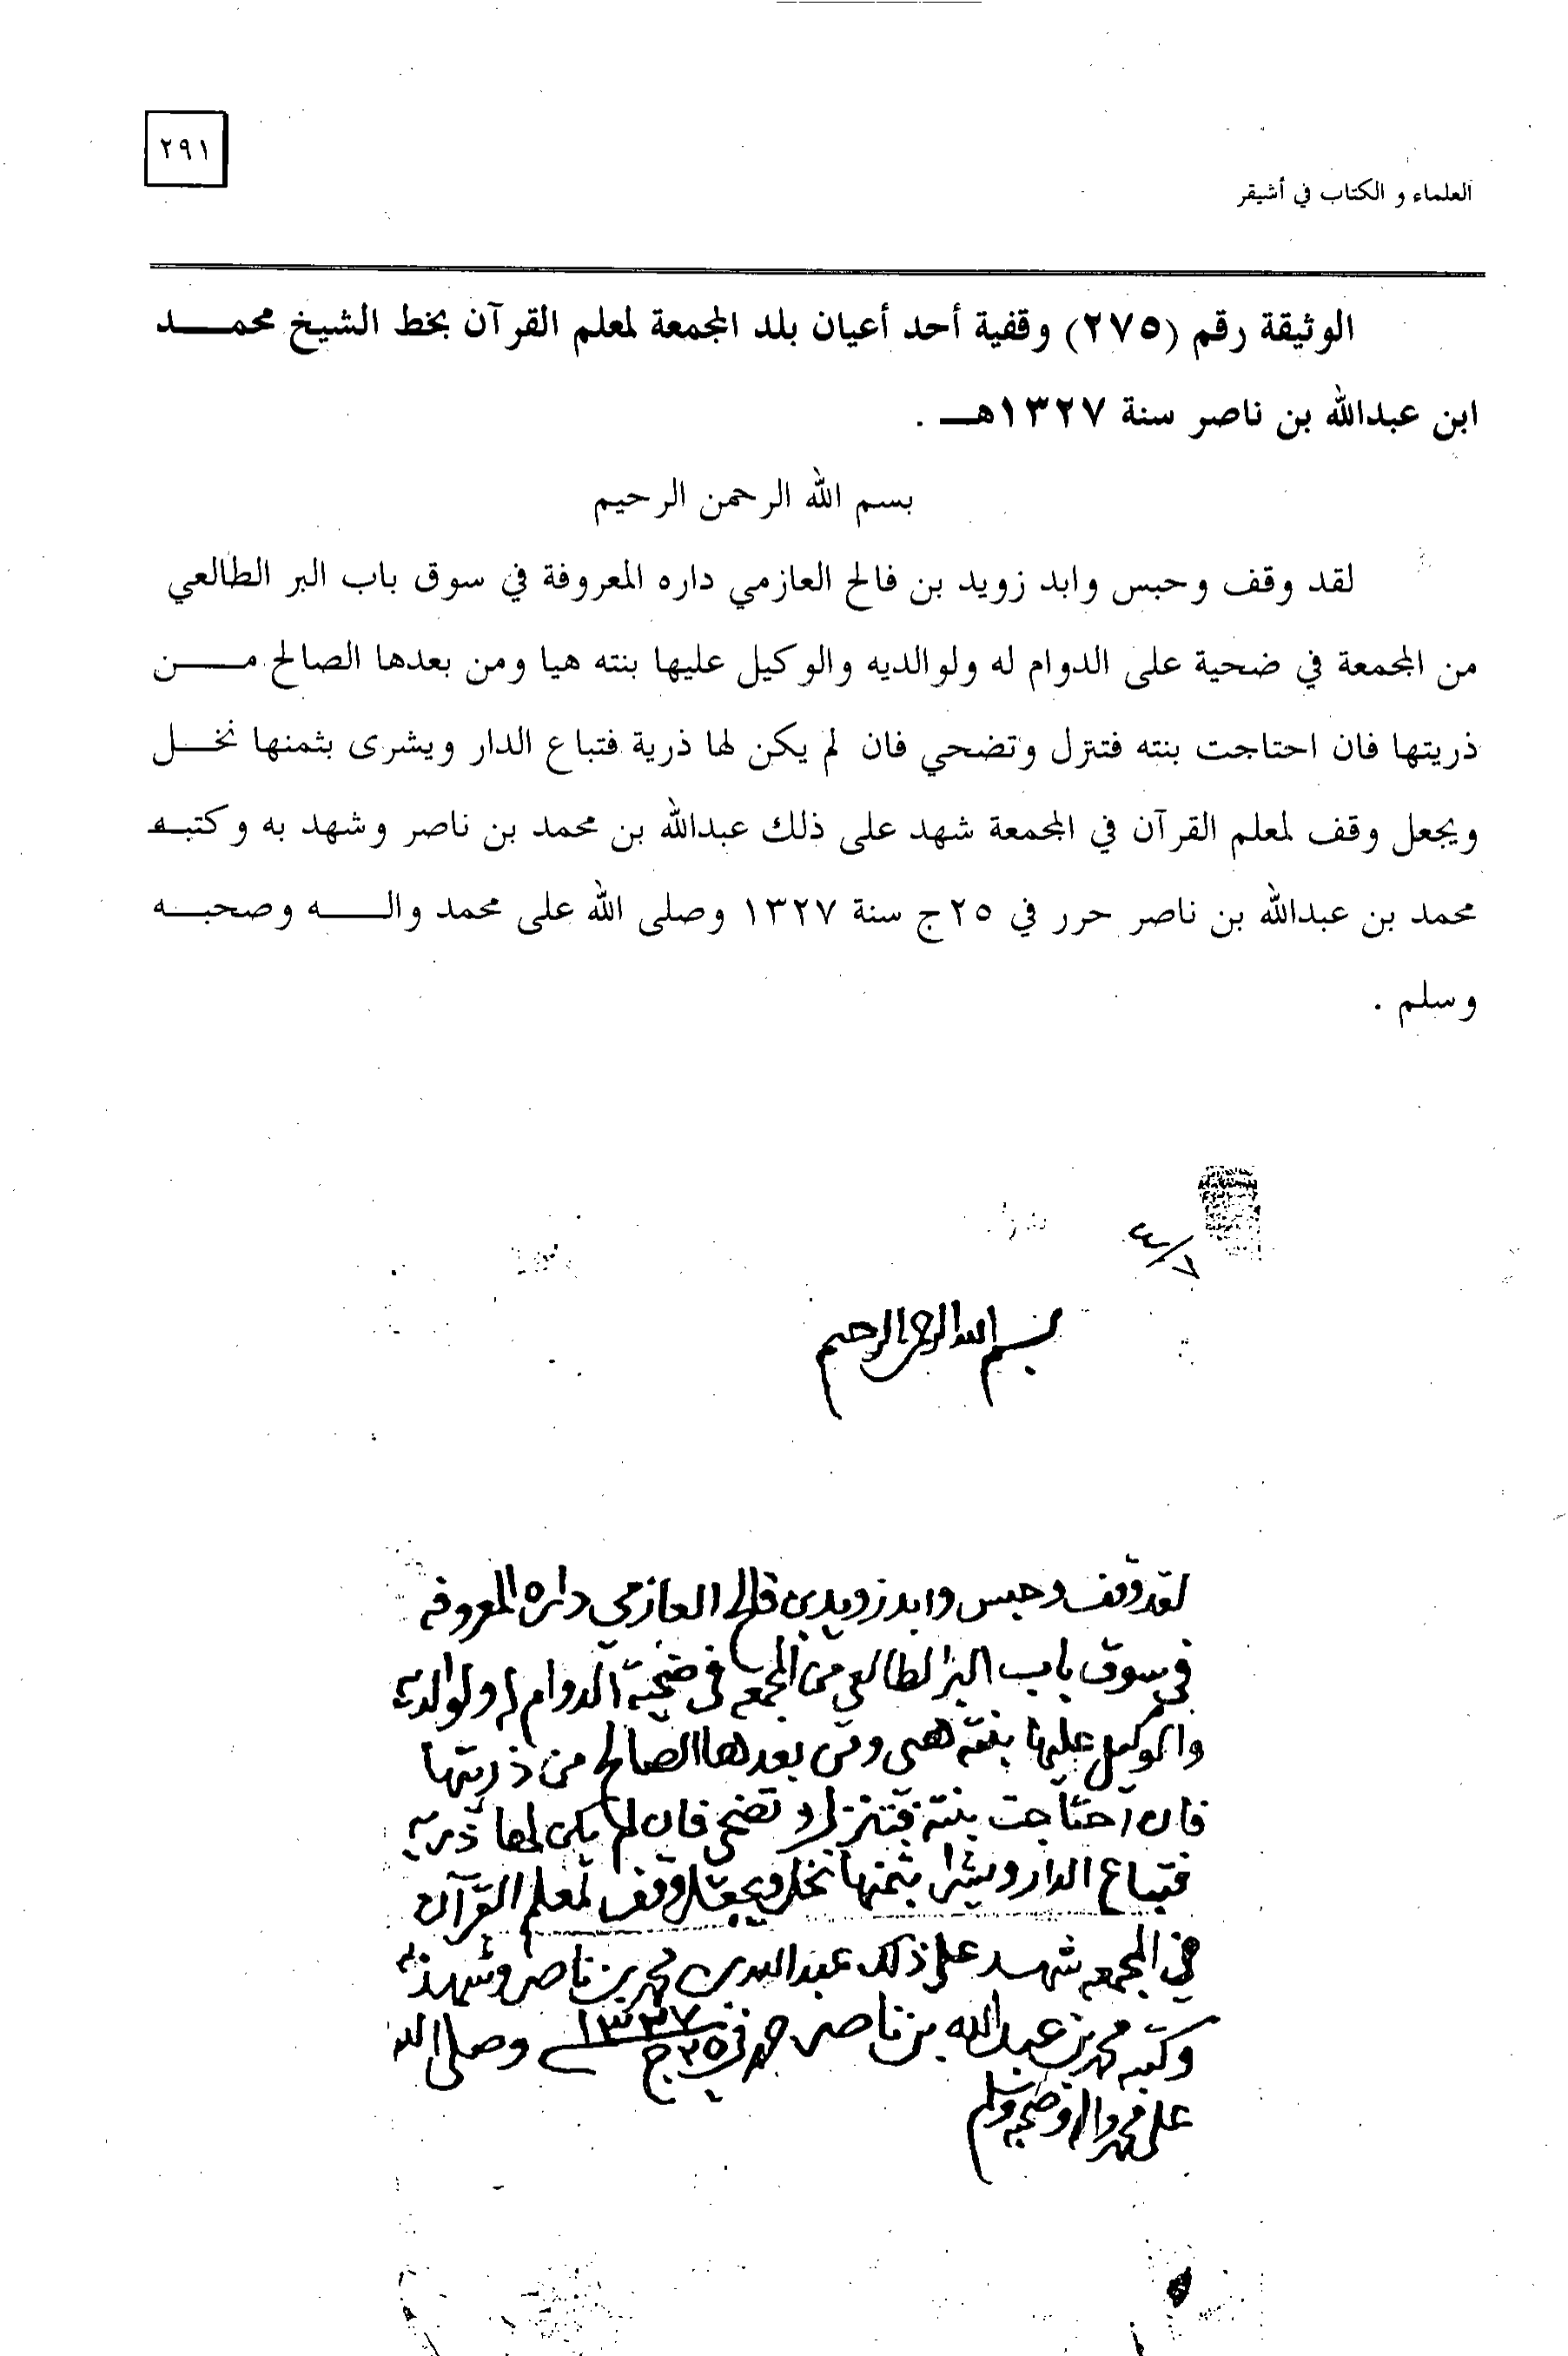 ٢٩١
العلماء و الكتاب في أشيقر
الوثيقة رقم (٢٧٥) وقفية أحد أعيان بلد المجمعة لمعلم القرآن بخط الشيخ محمد
ابن عبدالله بن ناصر سنة ١٣٢٧هـ .
بسم الله الرحمن الرحيم
لقد وقف وحبس وابد زويد بن فالح العازمي داره المعروفة في سوق باب البر الطالعي
من المجمعة في ضحية على الدوام له ولوالديه والوكيل عليها بنته هيا ومن بعدها الصالح من
ذريتها فان احتاجت بنته فتنزل وتضحي فان لم يكن لها ذرية فتباع الدار ويشرى بثمنها نخل
ويجعل وقف لمعلم القرآن في المجمعة شهد على ذلك عبدالله بن محمد بن ناصر وشهد به وكتبه
محمد بن عبدالله بن ناصر حرر في ٢٥ ج سنة ١٣٢٧ وصلى الله على محمد واله وصحبه
وسلم .
بسم الله الرحمن الرحيم
لقد وقف وحبس وابد زويد بن فالح العازمي داره المعروفه
في سوق باب البر الطالعي من المجمعه في ضحية الدوام له ولوالديه
والوكيل عليها بنته هيى ومن بعدها الصالح من ذريتها
فان احتاجت بنته فتنزل وتضحي فان لم يكن لها ذريه
فتباع الدار ويشرا بثمنها نخل ويجعل وقف لمعلم القرآن
في المجمعه شهد على ذلك عبدالله بن محمد بن ناصر وشهد به
وكتبه محمد بن عبدالله بن ناصر حرر في ٢٥ ج ١٣٢٧ وصلى الله
على محمد واله وصحبه وسلم